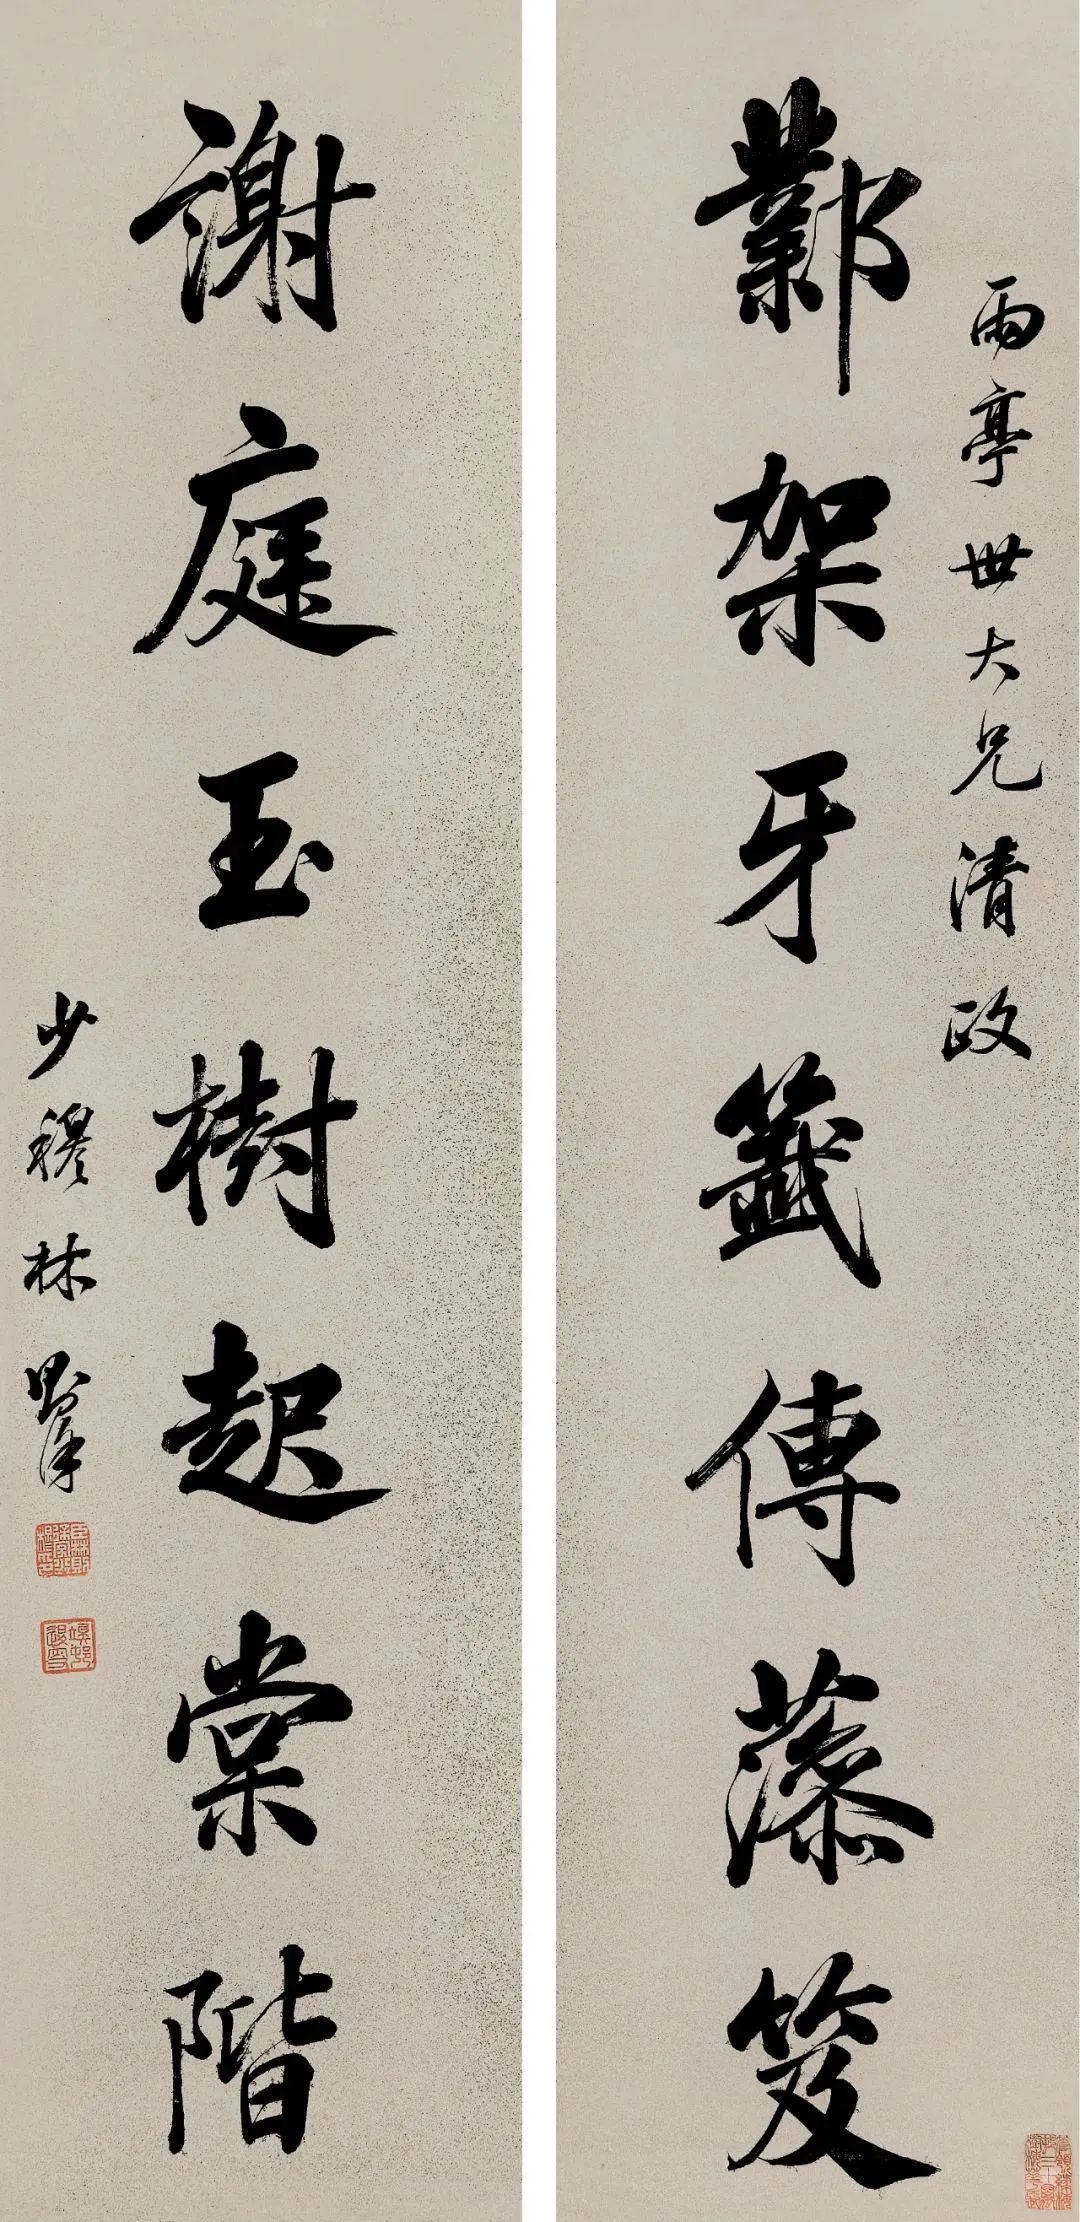 雨亭世大兄清政
鄴架牙籤傳藻笈
謝庭玉樹起棠階
少穆林則徐